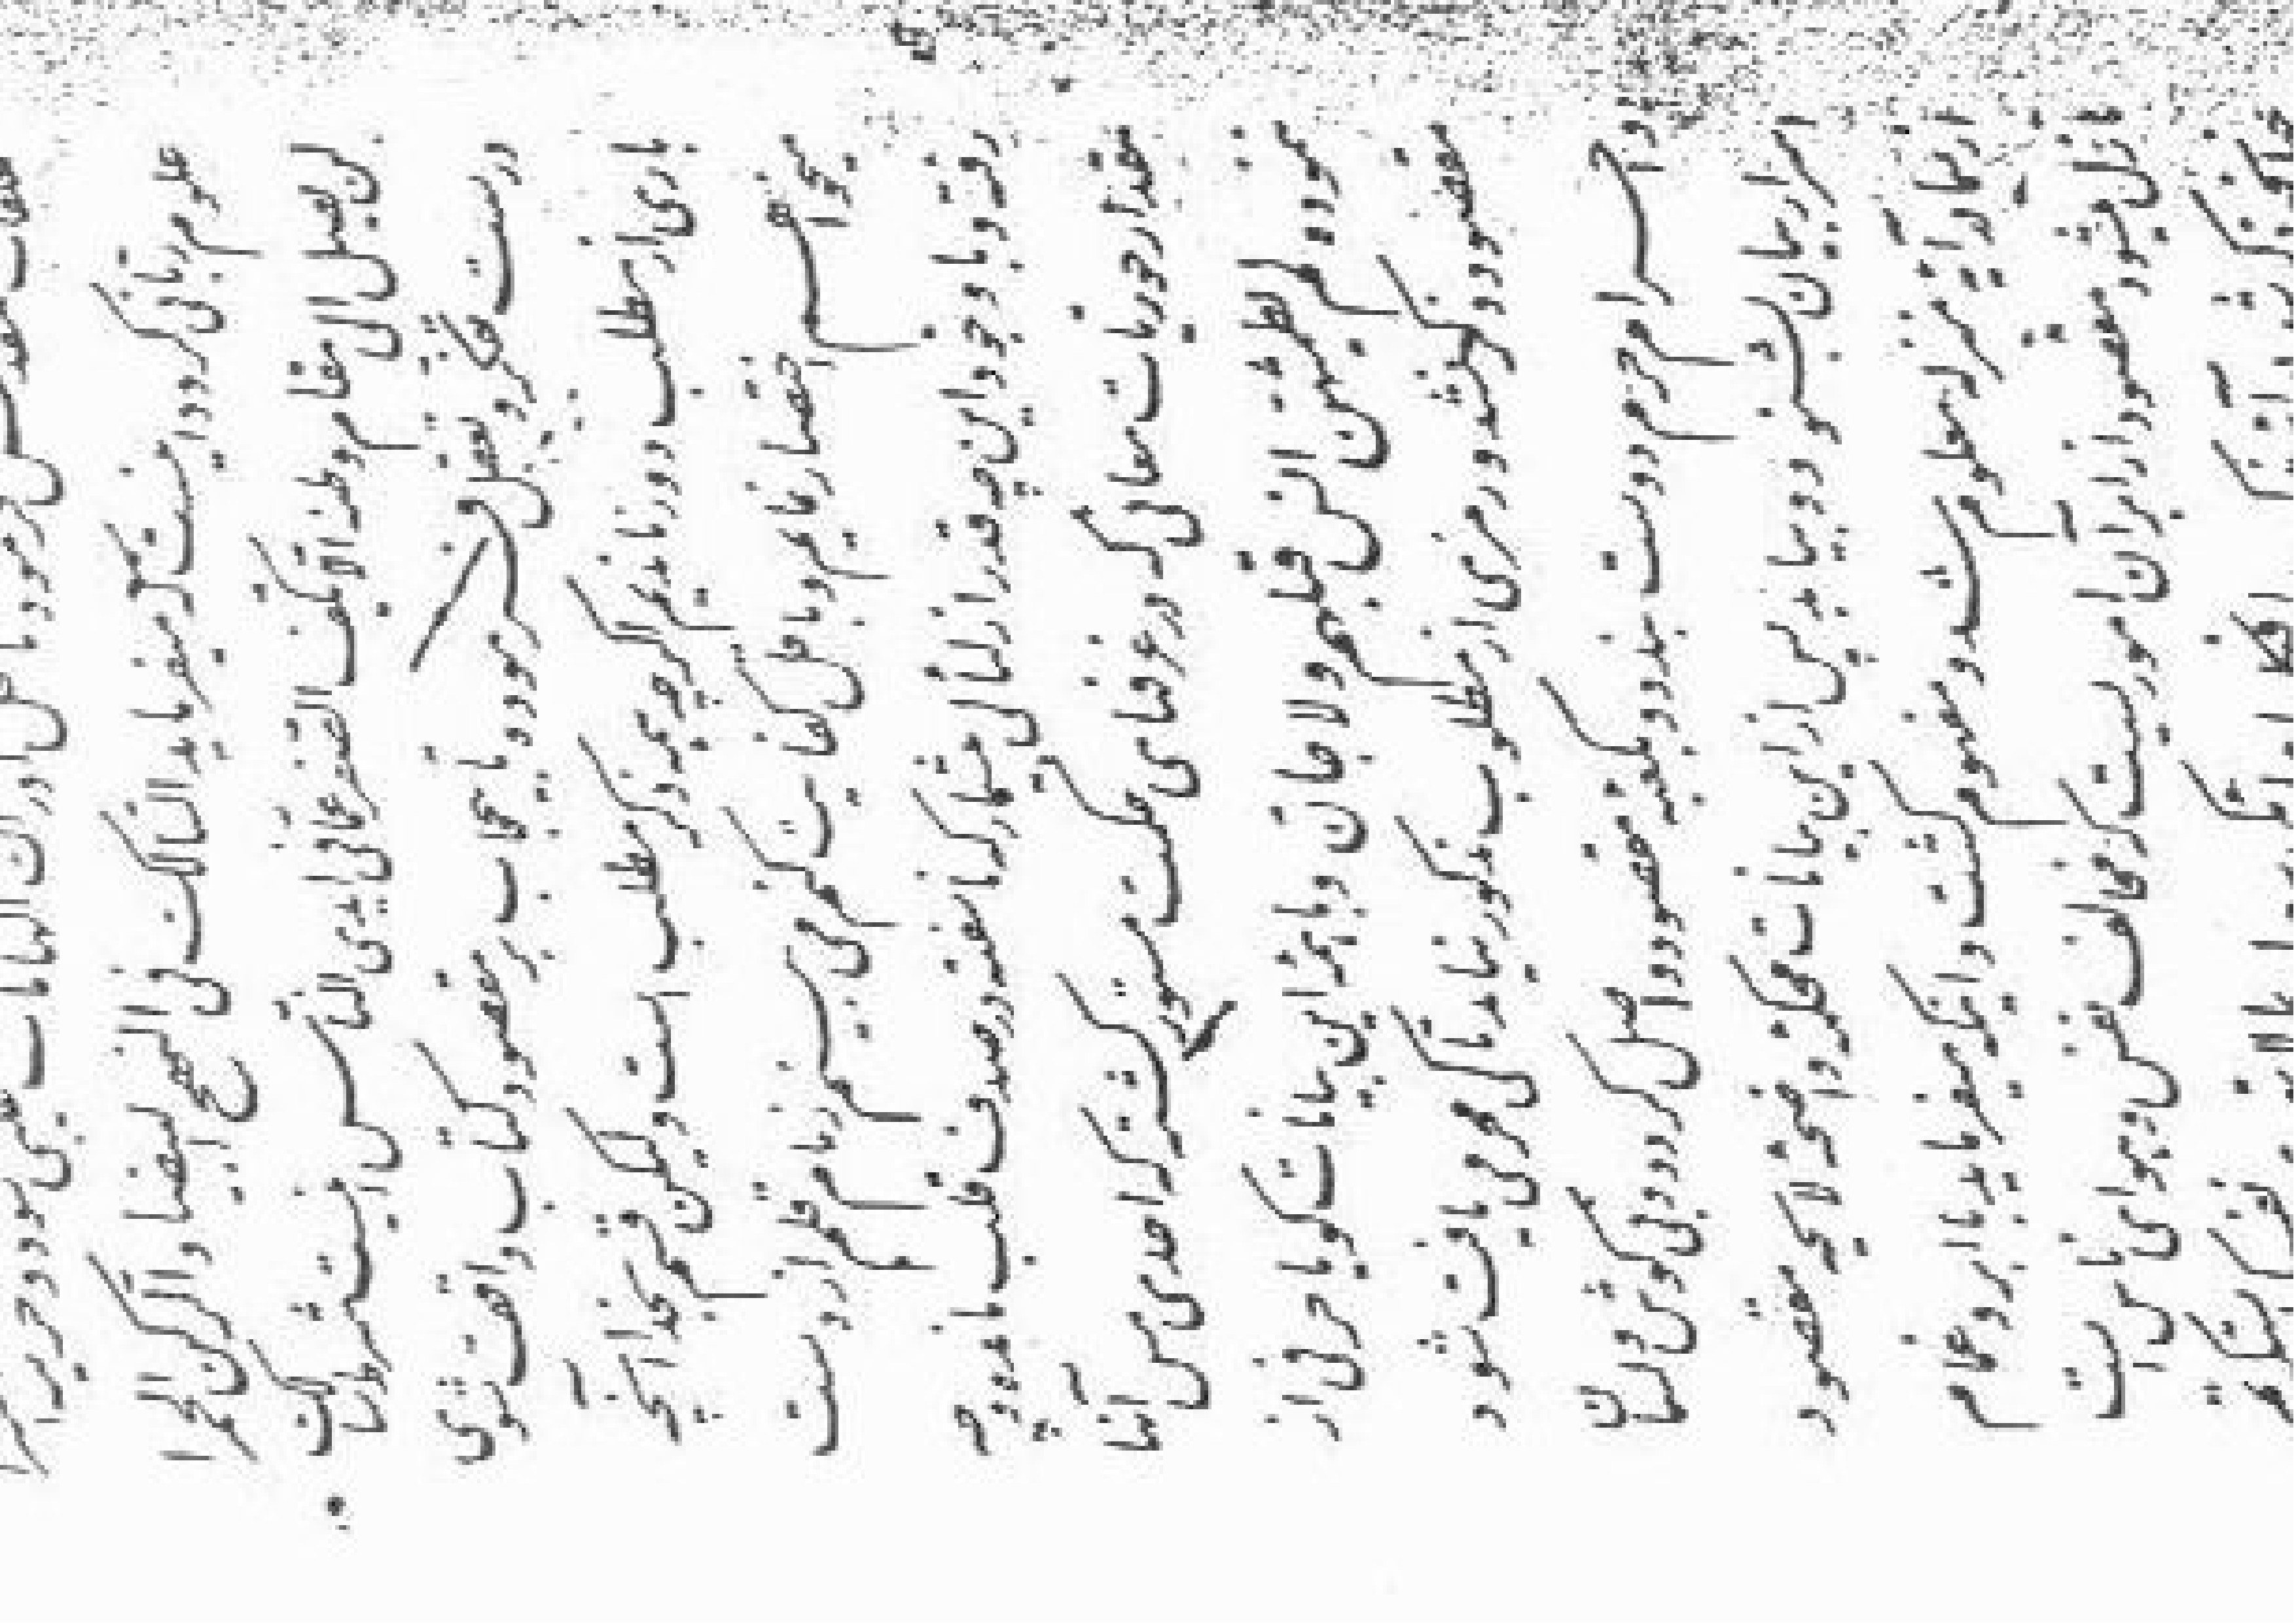 علوم ربانی کردد اینست که میفرماید السالک فی النهج البیضا و الرکن الحمرا
لن یصل الی مقام وطنه الا بکف الصفر عما فی ایدی الناس اینست شرایط سالک
درست تفکر و تعقل فرموده تا بی حجاب بر مقصود کتاب واقف شوی
باری از مطلب دور ماندیم اگر چه همه ذکر مطلب است ولیکن قسم بخدا آنچه
میخواهم اختصار نمایم و باقل کفایت کنم می بینم زمام قلم از دست
رفته و با وجود این چه قدر از لئالی بیشمار که ناسفته در صدف قلب مانده و چه
مقدار حوریات معانی که در غرفهای حکمت مستور گشته که احدی مس آنها
ننموده لم یطمثهن انس قبلهم و لا جان و با همه این بیانات گویا حرفی از
مقصود ذکر نشد و رمزی از مطلوب مذکور نیامد تا کی محرمی یافت شود
و احرام حرم دوست بندد و بکعبه مقصود واصل گردد و بی گوش و لسان
اسرار بیان بشنود و بیابد پس از این بیانات محکمه واضحه لائحه مقصود
از سما در آیه منزله معلوم شد و مفهوم گشت و اینکه میفرماید با ابر و غمام
نازل شود مقصود از ابر آن اموریست که مخالف نفس و هوای ناس است